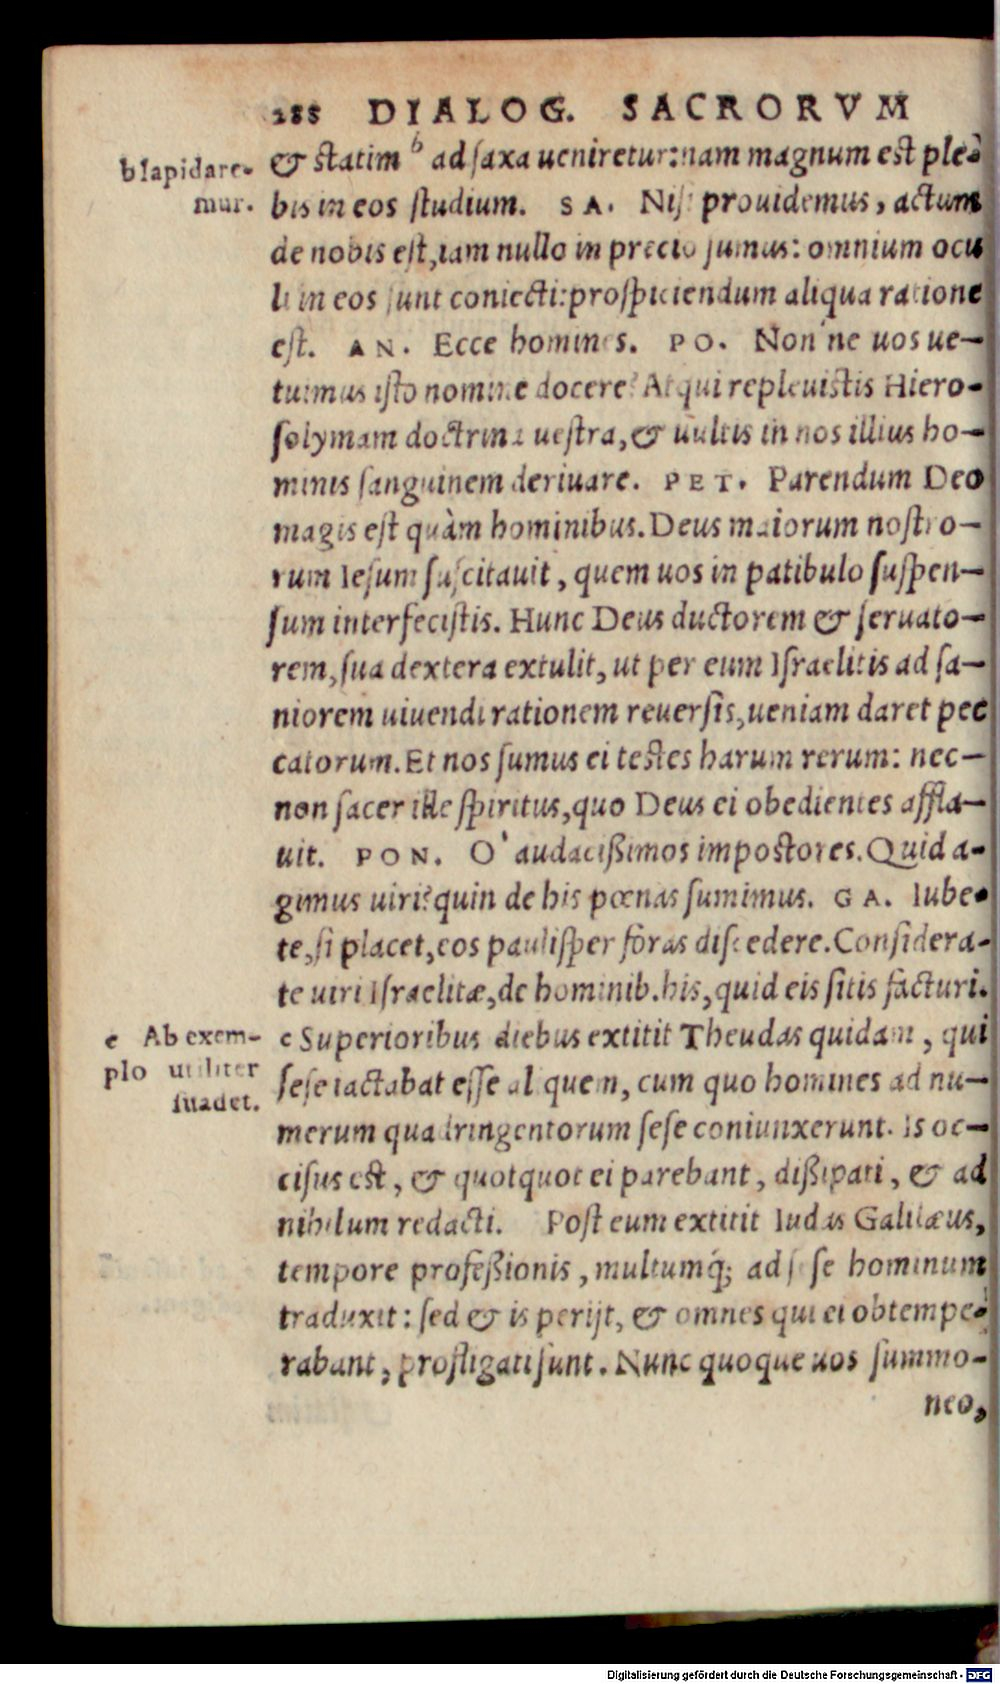 288 DIALOG. SACRORVM
& statim b ad saxa ueniretur: nam magnum est ple-
bis in eos studium. SA. Nisi prouidemus, actum
de nobis est, iam nullo in precio sumus: omnium ocu
li in eos sunt coniecti: prospiciendum aliqua ratione
est. AN. Ecce homines. PO. Non'ne uos ue-
tuimus isto nomine docere? Atqui repleuistis Hiero-
solymam doctrina uestra, & uultis in nos illius ho-
minis sanguinem deriuare. PET. Parendum Deo
magis est quàm hominibus. Deus maiorum nostro-
rum Iesum suscitauit, quem uos in patibulo suspen-
sum interfecistis. Hunc Deus ductorem & seruato-
rem, sua dextera extulit, ut per eum Israelitis ad sa-
niorem uiuendi rationem reuersis, ueniam daret pec
catorum. Et nos sumus ei testes harum rerum: nec-
non sacer ille spiritus, quo Deus ei obedientes affla-
uit. PON. O' audacißimos impostores. Quid a-
gimus uiri? quin de his pœnas sumimus. GA. Iube-
te, si placet, eos paulisper foras discedere. Considera-
te uiri Israelitæ, de hominib. his, quid eis sitis facturi.
c Superioribus diebus extitit Theudas quidam, qui
sese iactabat esse aliquem, cum quo homines ad nu-
merum quadringentorum sese coniunxerunt. Is oc-
cisus est, & quotquot ei parebant, dißipati, & ad
nihilum redacti. Post eum extitit Iudas Galilæus,
tempore profeßionis, multumq; ad sese hominum
traduxit: sed & is perijt, & omnes qui ei obtempe-
rabant, profligati sunt. Nunc quoque uos summo-
neo,
b lapidare-
mur.
c Ab exem-
plo utiliter
suadet.
Digitalisierung gefördert durch die Deutsche Forschungsgemeinschaft - DFG